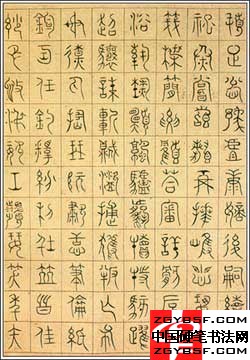 頓足悅豫且康嫡後嗣
祀蒸嘗稽顙再拜悚
箋牒簡要顧答審詳骸垢
浴執熱願涼驢騾犢特駭躍
超驤誅斬賊盜捕獲叛亡布
射僚丸嵇琴阮嘯恬筆倫紙
鈞巧任釣釋紛利俗並皆佳
妙毛施淑姿工顰妍笑年矢
ZGYBSF.COM
中国硬笔书法网
ZGYBSF.COM